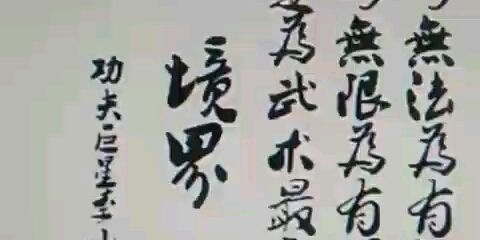 無法為有
無限為有
為武术最
境界
功夫巨星李